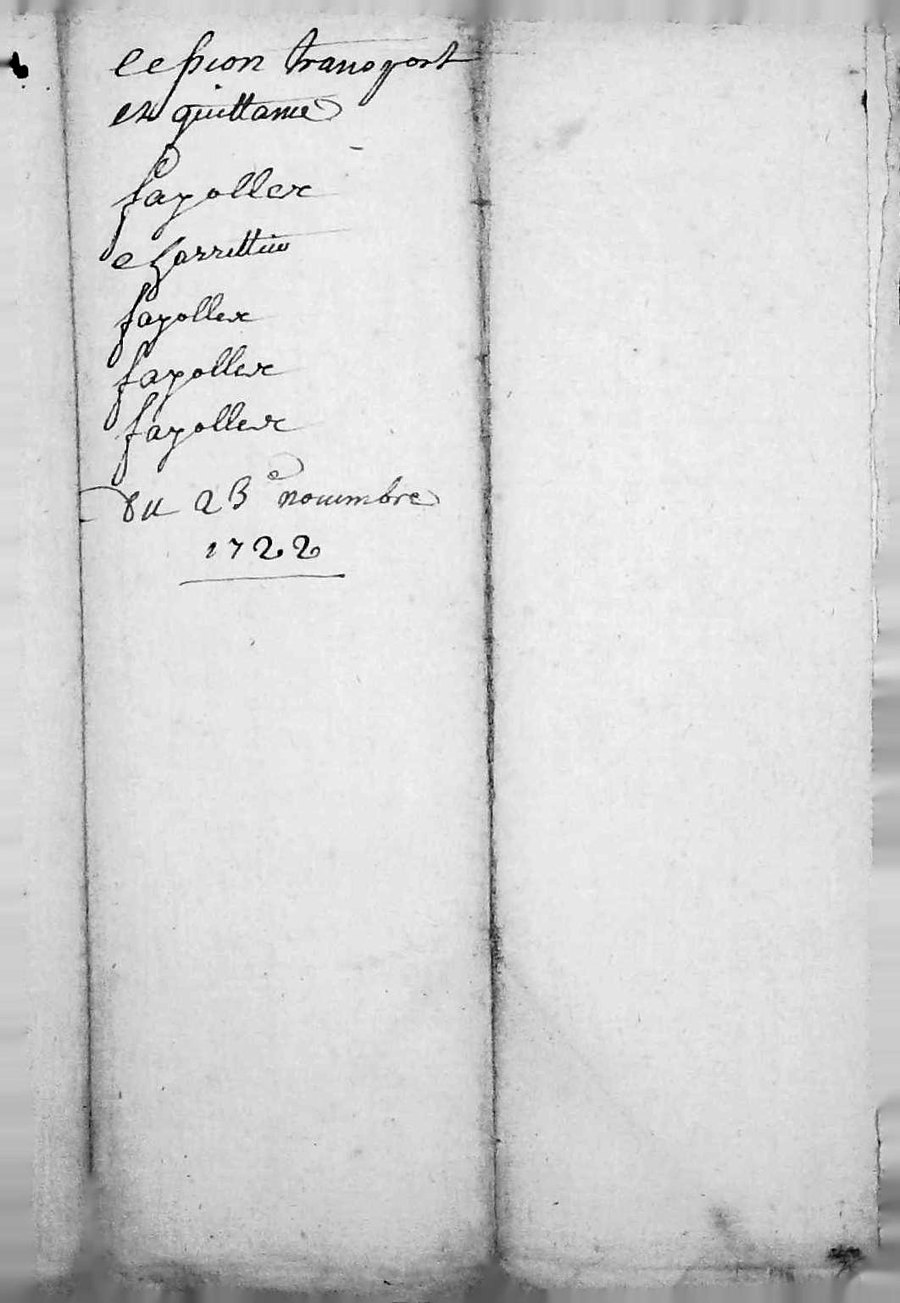 cession transport
et quittance
fayolles
charrettier
fayolles
fayolles
fayolles
Du 23e nouembre
1722